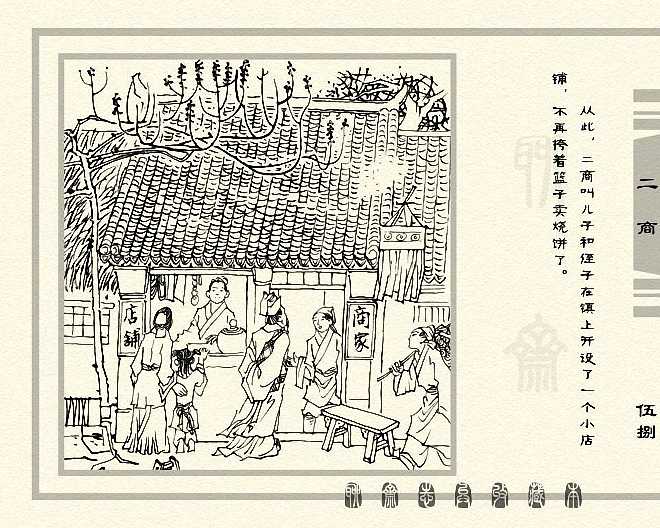 二商
伍捌
从此，二商叫儿子和侄子在镇上开设了一个小店
铺，不再挎着篮子卖烧饼了。
商家
店铺
聊斋志异收藏本